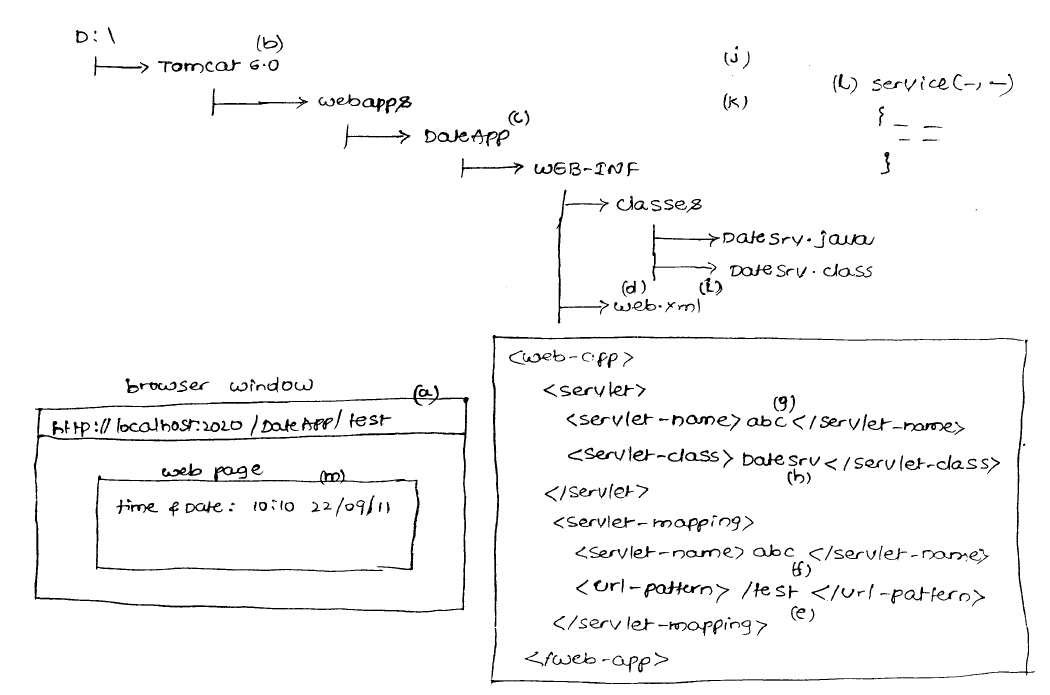 D:\
(b)
Tomcat 6.0
webapps
(c)
DateApp
WEB-INF
classes
DateSrv.java
DateSrv.class
(d) (i)
web.xml
(j)
(k)
(l) service(-,-)
{
— —
— —
}
browser window
(a)
http://localhost:2020/DateApp/test
web page
(m)
time & Date: 10:10 22/09/11
<web-app>
<servlet>
(g)
<servlet-name> abc </servlet-name>
<servlet-class> DateSrv </servlet-class>
(h)
</servlet>
<servlet-mapping>
<servlet-name> abc </servlet-name>
(f)
<url-pattern> /test </url-pattern>
(e)
</servlet-mapping>
</web-app>